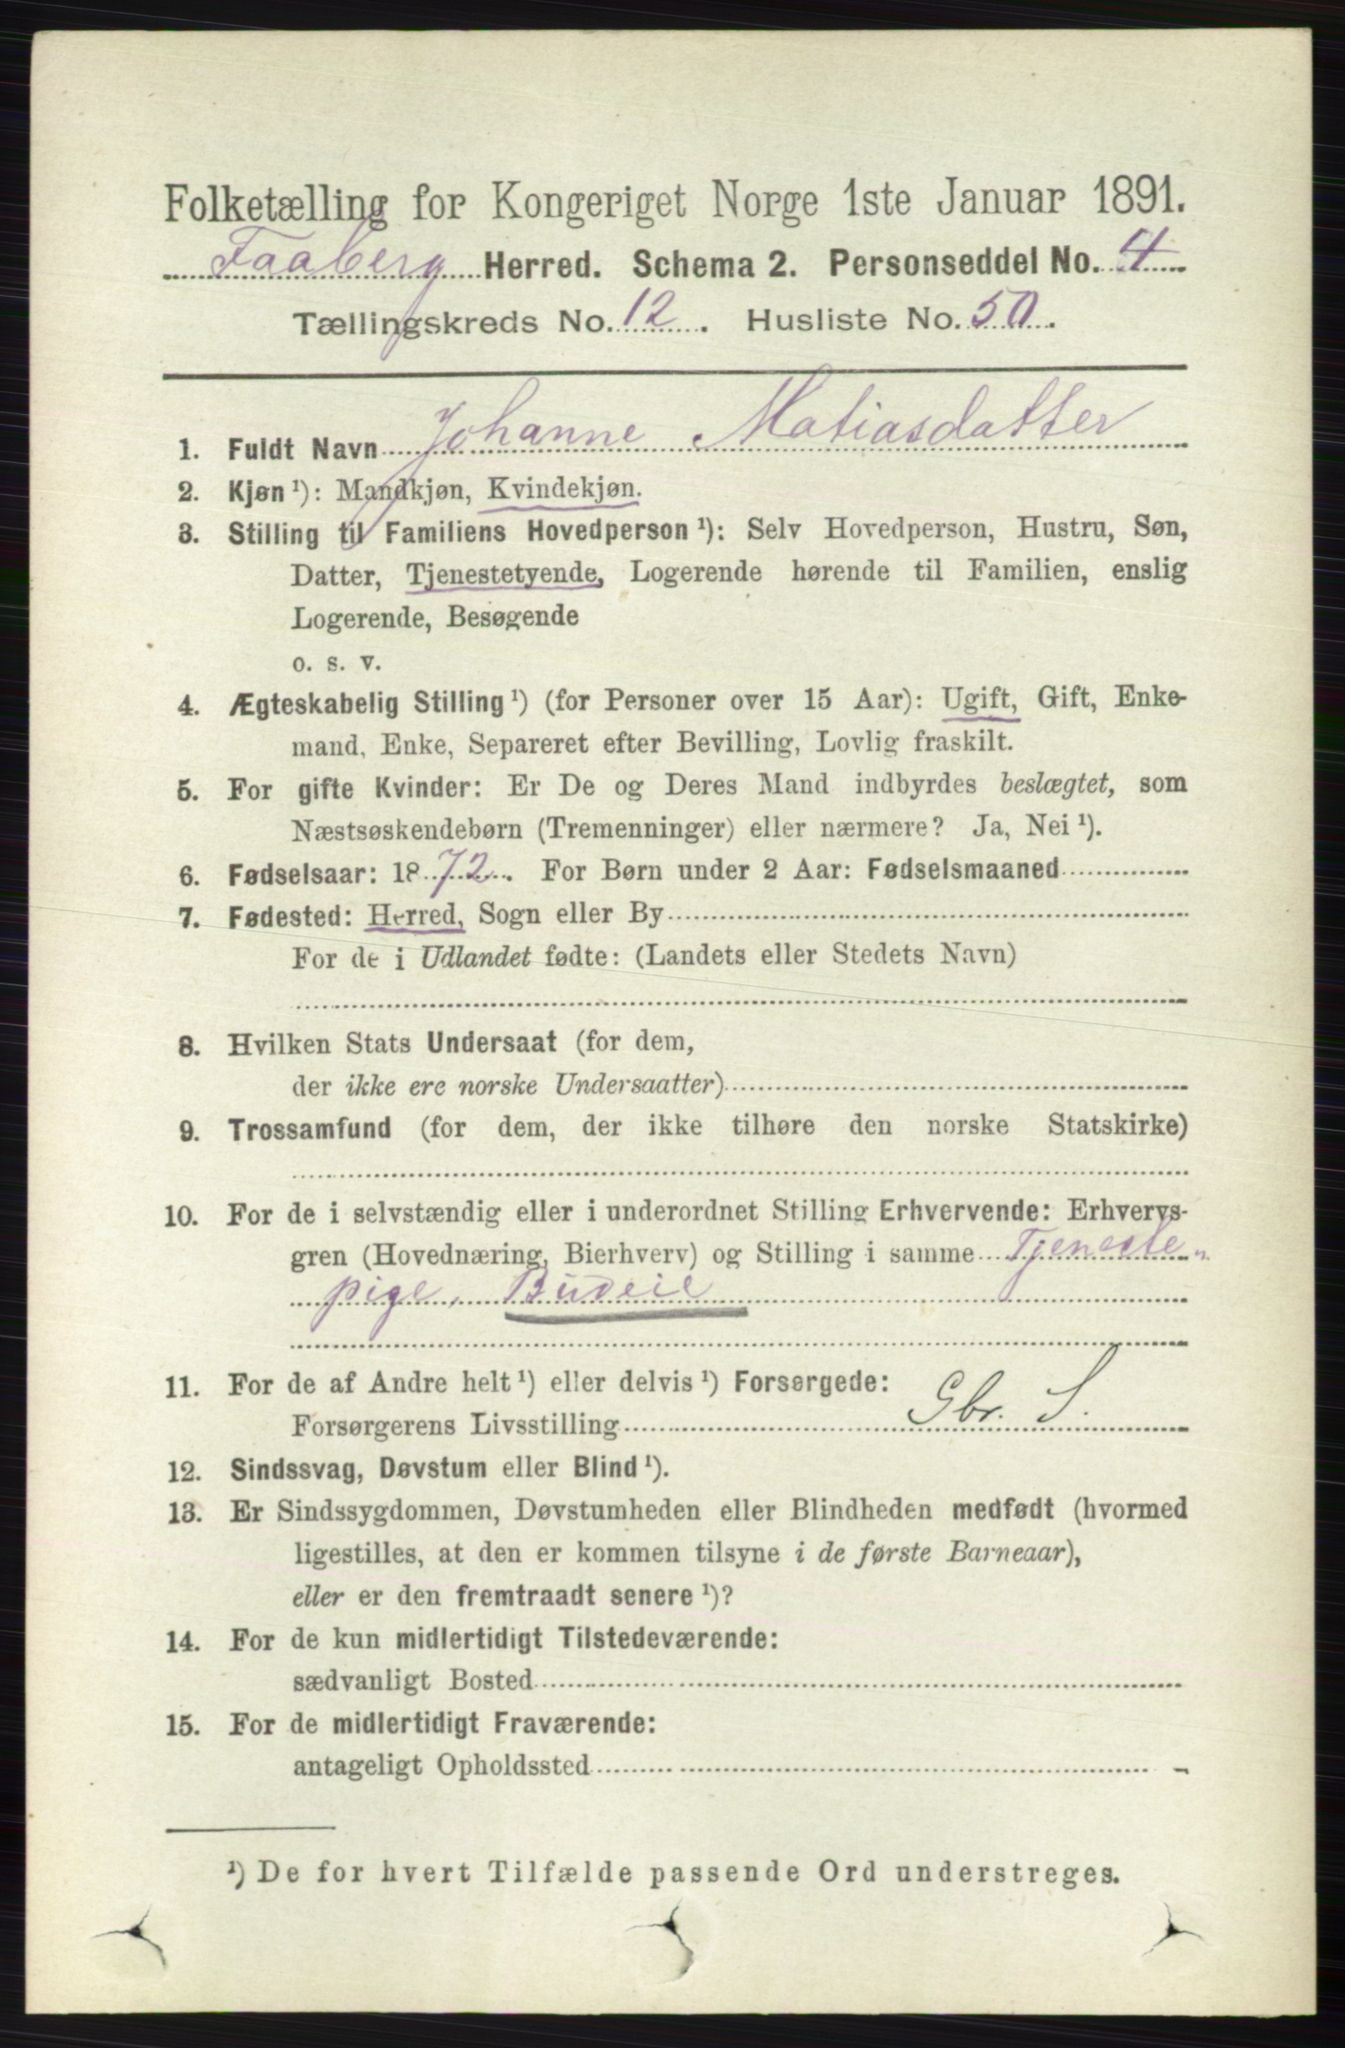 Folketælling for Kongeriget Norge 1ste Januar 1891.
Faaberg Herred. Schema 2. Personseddel No. 4
Tællingskreds No. 12. Husliste No. 50.
1. Fuldt Navn Johanne Matiasdatter
2. Kjøn ¹): Mandkjøn, Kvindekjøn.
3. Stilling til Familiens Hovedperson ¹): Selv Hovedperson, Hustru, Søn,
Datter, Tjenestetyende, Logerende hørende til Familien, enslig
Logerende, Besøgende
o. s. v.
4. Ægteskabelig Stilling ¹) (for Personer over 15 Aar): Ugift, Gift, Enke-
mand, Enke, Separeret efter Bevilling, Lovlig fraskilt.
5. For gifte Kvinder: Er De og Deres Mand indbyrdes beslægtet, som
Næstsøskendebørn (Tremenninger) eller nærmere? Ja, Nei ¹).
6. Fødselsaar: 1872. For Børn under 2 Aar: Fødselsmaaned
7. Fødested: Herred, Sogn eller By
For de i Udlandet fødte: (Landets eller Stedets Navn)
8. Hvilken Stats Undersaat (for dem,
der ikke ere norske Undersaatter)
9. Trossamfund (for dem, der ikke tilhøre den norske Statskirke)
10. For de i selvstændig eller i underordnet Stilling Erhvervende: Erhvervs-
gren (Hovednæring, Bierhverv) og Stilling i samme Tjeneste-
pige, Budeie
11. For de af Andre helt ¹) eller delvis ¹) Forsørgede:
Forsørgerens Livsstilling Gbr. S.
12. Sindssvag, Døvstum eller Blind ¹).
13. Er Sindssygdommen, Døvstumheden eller Blindheden medfødt (hvormed
ligestilles, at den er kommen tilsyne i de første Barneaar),
eller er den fremtraadt senere ¹)?
14. For de kun midlertidigt Tilstedeværende:
sædvanligt Bosted
15. For de midlertidigt Fraværende:
antageligt Opholdssted
¹) De for hvert Tilfælde passende Ord understreges.